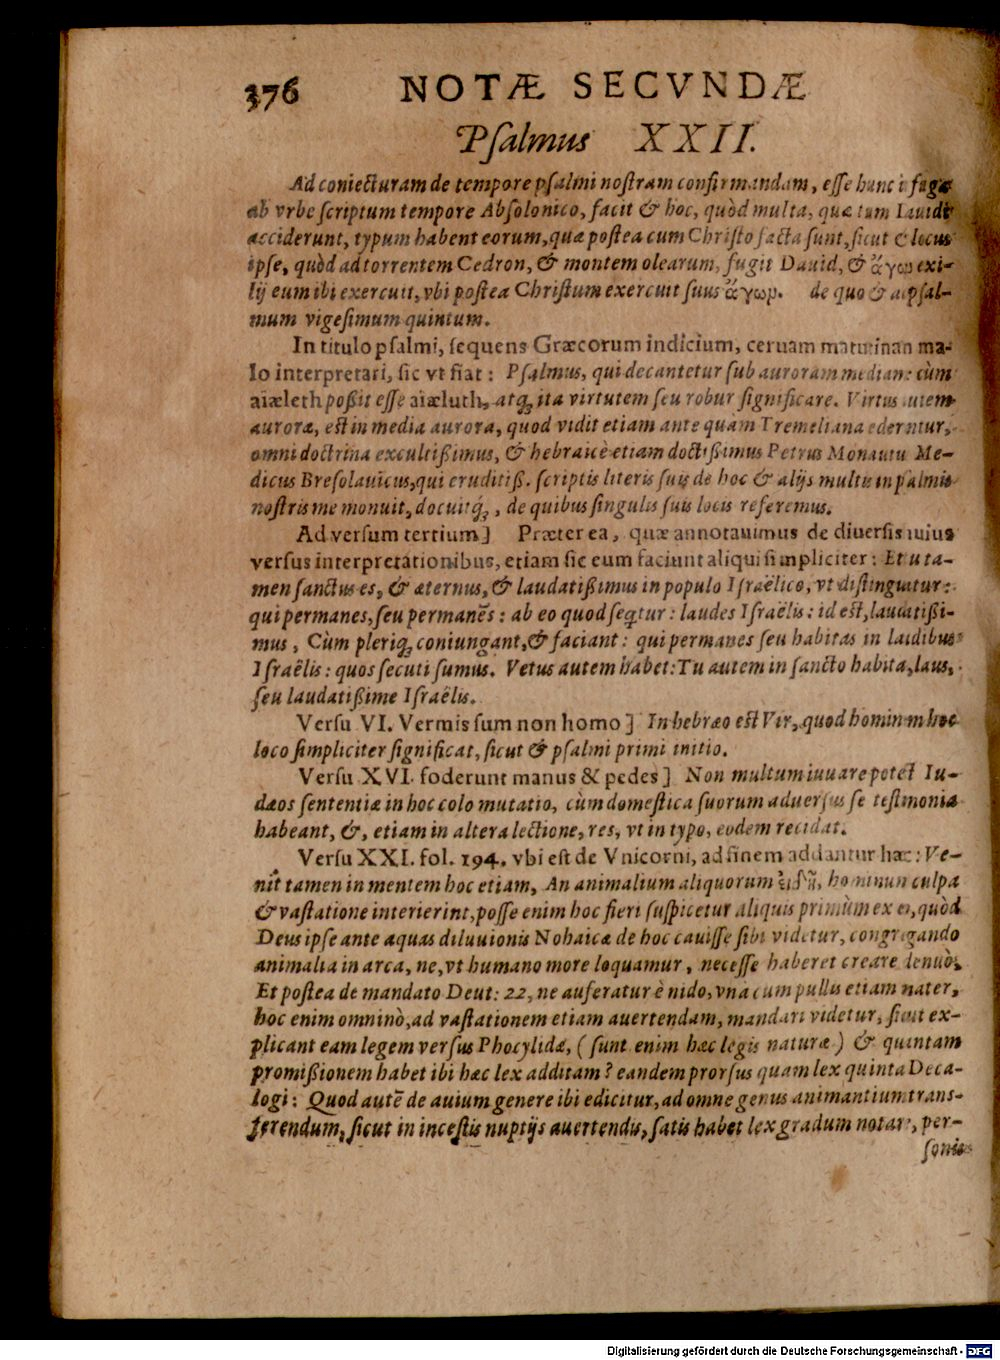 376 NOTÆ SECVNDÆ
Pſalmus XXII.
Ad coniecturam de tempore pſalmi noſtram confirmandam, eſſe hunc i fuga
ab vrbe ſcriptum tempore Abſolonico, facit & hoc, quòd multa, quæ tum Dauidi
acciderunt, typum habent eorum, quæ poſtea cum Chriſto facta ſunt, ſicut & locus
ipſe, quòd ad torrentem Cedron, & montem olearum, fugit Dauid, & ἄγωρ exi-
lij eum ibi exercuit, vbi poſtea Chriſtum exercuit ſuus ἄγωρ. de quo & ad pſal-
mum vigeſimum quintum.
In titulo pſalmi, ſequens Græcorum indicium, ceruam matutinan ma-
lo interpretari, ſic vt fiat: Pſalmus, qui decantetur ſub auroram mediam: cùm
aiæleth poßit eſſe aiæluth, atq; ita virtutem ſeu robur ſignificare. Virtus autem
auroræ, eſt in media aurora, quod vidit etiam ante quàm Tremeliana ederntur,
omni doctrina excultißimus, & hebraicè etiam doctißimus Petrus Monauiu Me-
dicus Breſolauicus, qui eruditiß. ſcriptis literis ſuis de hoc & alijs multis in pſalmis
noſtris me monuit, docuitq;, de quibus ſingulis ſuis locis referemus.
Ad verſum tertium] Præter ea, quæ annotauimus de diuerſis huius
verſus interpretationibus, etiam ſic eum faciunt aliqui ſimpliciter: Et u ta-
men ſanctus es, & æternus, & laudatißimus in populo Iſraëlico, vt diſtinguatur:
qui permanes, ſeu permanẽs: ab eo quod ſeq̃tur: laudes Iſraëlis: id eſt, laudatißi-
mus, Cùm pleriq; coniungant, & faciant: qui permanes ſeu habitas in laudibus
Iſraëlis: quos ſecuti ſumus. Vetus autem habet: Tu autem in ſancto habita, laus,
ſeu laudatißime Iſraëlis.
Verſu VI. Vermis ſum non homo] In hebræo eſt Vir, quod hominem hoc
loco ſimpliciter ſignificat, ſicut & pſalmi primi initio.
Verſu XVI. foderunt manus & pedes] Non multum iuuare poteſt Iu-
dæos ſententiæ in hoc colo mutatio, cùm domeſtica ſuorum aduerſus ſe teſtimonia
habeant, &, etiam in altera lectione, res, vt in typo, eodem recidat.
Verſu XXI. fol. 194. vbi eſt de Vnicorni, ad finem addantur hæc: Ve-
nit tamen in mentem hoc etiam, An animalium aliquorum hominun culpa
& vaſtatione interierint, poſſe enim hoc fieri ſuſpicetur aliquis primùm ex eo, quòd
Deus ipſe ante aquas diluuionis Nohaicæ de hoc cauiſſe ſibi videtur, congregando
animalia in arca, ne, vt humano more loquamur, neceſſe haberet creare denuò.
Et poſtea de mandato Deut: 22, ne auferatur è nido, vna cum pullis etiam mater,
hoc enim omninò, ad vaſtationem etiam auertendam, mandari videtur, ſicut ex-
plicant eam legem verſus Phocylidæ, (ſunt enim hæc legis naturæ) & quantam
promißionem habet ibi hæc lex additam? eandem prorſus quam lex quinta Deca-
logi: Quod autẽ de auium genere ibi edicitur, ad omne genus animantium trans-
ferendum, ſicut in inceſtis nuptijs auertendis, ſatis habet lex gradum notare, per-
ſonis
Digitalisierung gefördert durch die Deutsche Forschungsgemeinschaft - DFG